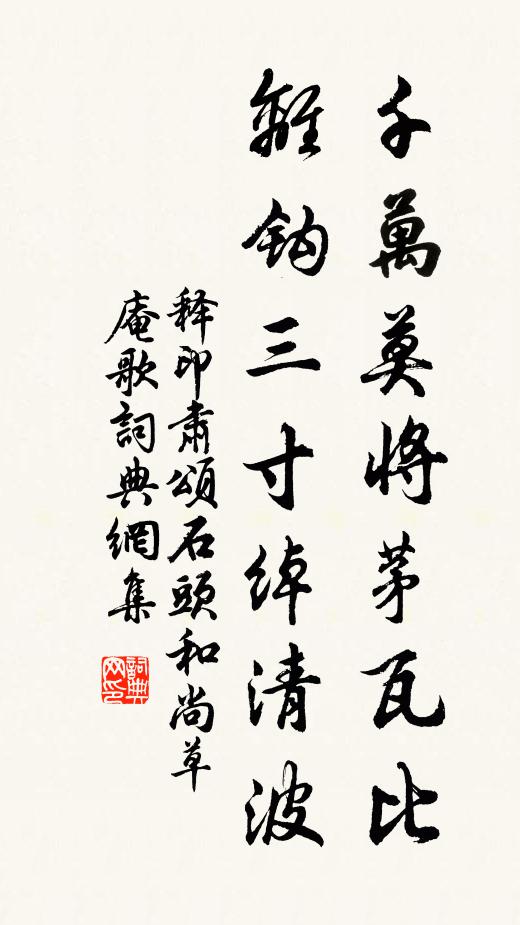 千萬莫將茅瓦比
離鈎三寸綽清波
释印肅頌石頭和尚草
庵歌詞典網集
詞典网印